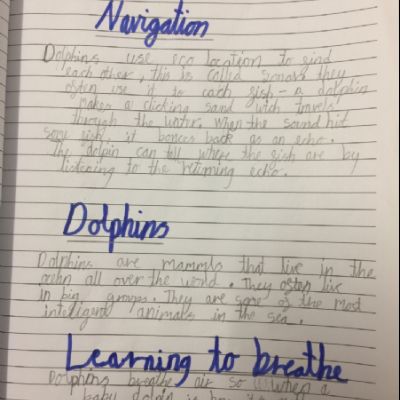 Navigation
Dolphins use eco location to find
each other, this is called sonar they
often use it to cach fish - a dolphin
makes a clicking sand wich travels
through the water. When the sound hit
some fish, it bonces back as an echo.
The dolpin can tell where the fish are by
listening to the returning echo.
Dolphins
Dolphins are mammls that live in the
all over the world. They often live
in big groups. They are some of the most
intelligent animals in the sea.
Learning to breathe
Dolphins breathe air so when a
baby